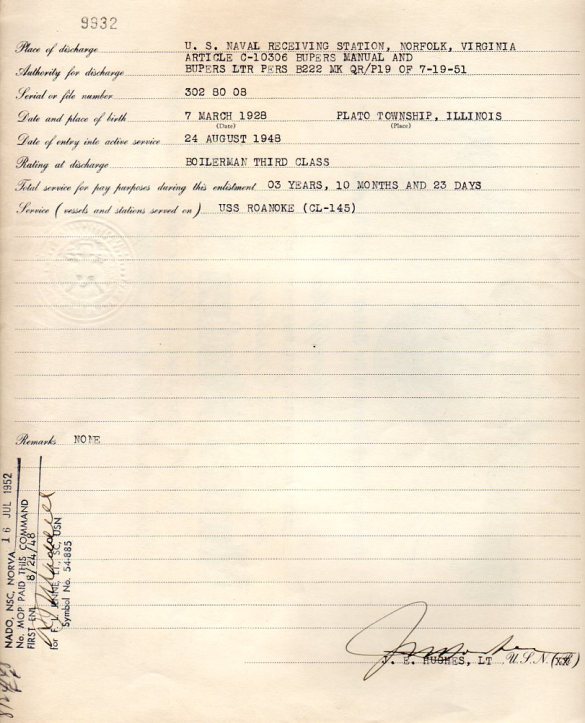 9932
Place of discharge U. S. NAVAL RECEIVING STATION, NORFOLK, VIRGINIA
ARTICLE C-10306 BUPERS MANUAL AND
Authority for discharge BUPERS LTR PERS B222 MK QR/P19 OF 7-19-51
Serial or file number 302 80 08
Date and place of birth 7 MARCH 1928 PLATO TOWNSHIP, ILLINOIS
(Date) (Place)
Date of entry into active service 24 AUGUST 1948
Rating at discharge BOILERMAN THIRD CLASS
Total service for pay purposes during this enlistment 03 YEARS, 10 MONTHS AND 23 DAYS
Service (vessels and stations served on) USS ROANOKE (CL-145)
Remarks NONE
NADO, NSC, NORVA 16 JUL 1952
No. MOP PAID THIS COMMAND
FIRST ENL 8/24/48
for LT., SC, USN
Symbol No. 54-885
J. E. HUGHES, LT U.S.N.